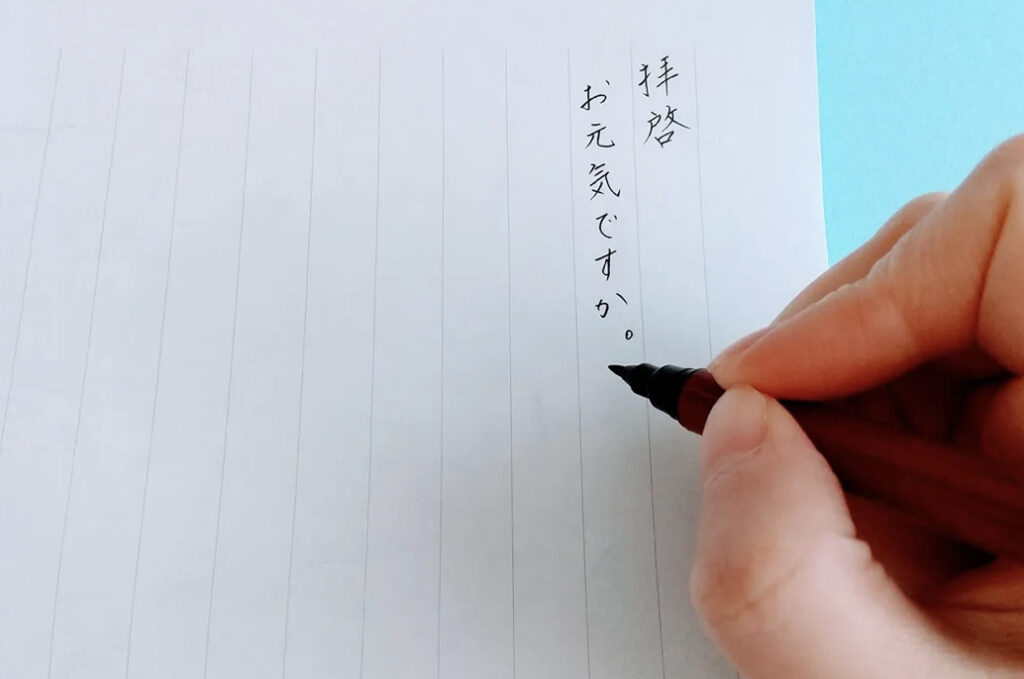 拝啓
お元気ですか。